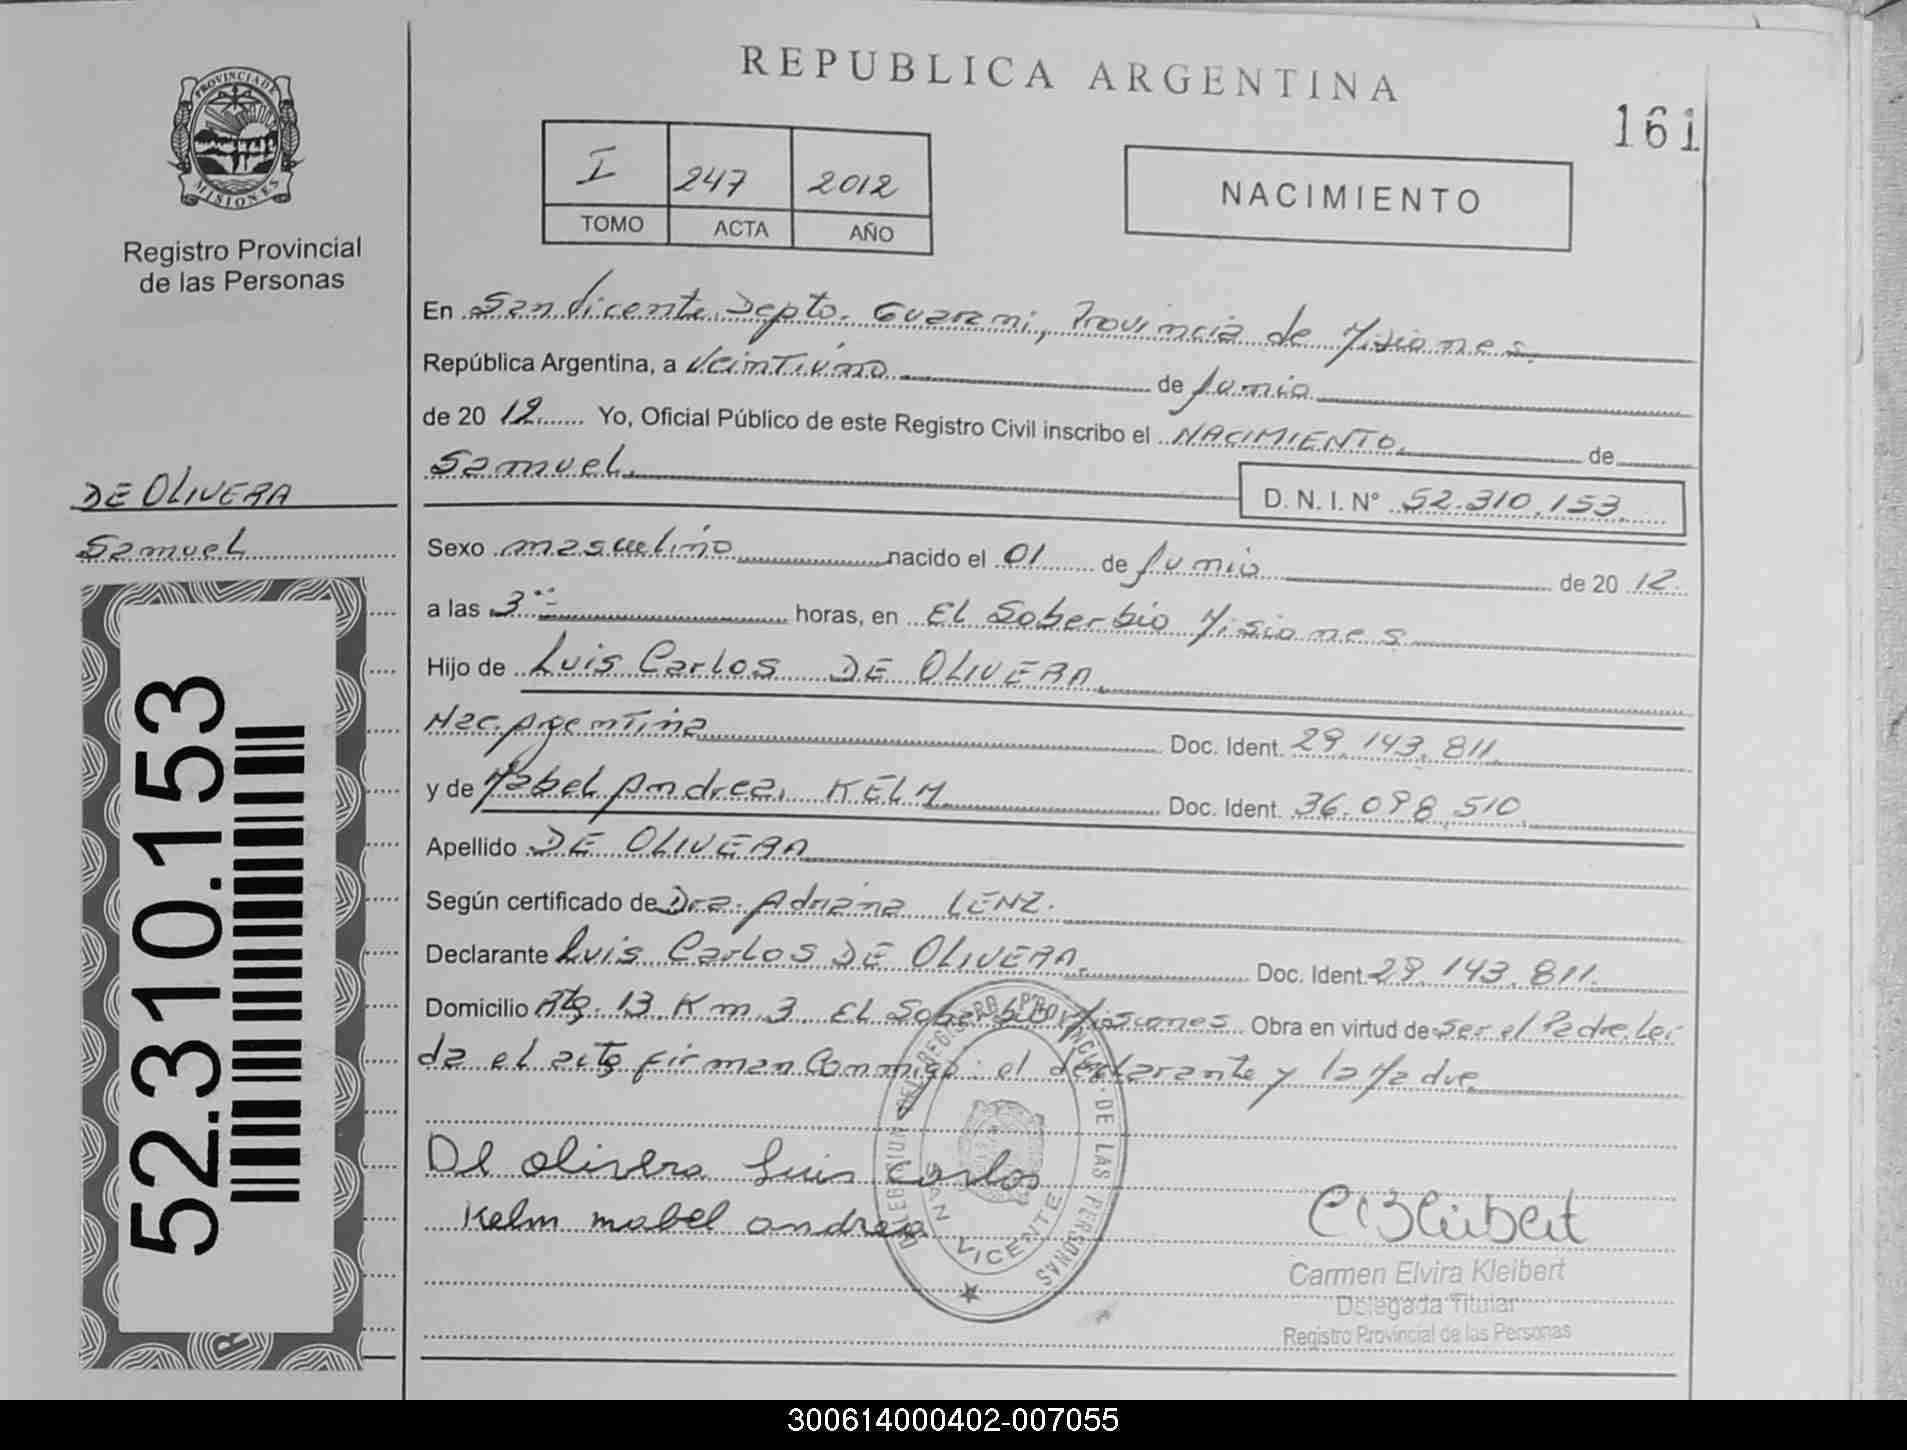 REPUBLICA ARGENTINA
161
PROVINCIA DE MISIONES
Registro Provincial
de las Personas
I 247 2012
TOMO ACTA AÑO
NACIMIENTO
En San Vicente Depto. Guarani, Provincia de Misiones.
República Argentina, a Veintiuno de Junio
de 2012 Yo, Oficial Público de este Registro Civil inscribo el NACIMIENTO de
Samuel.
D. N. I. N° 52.310.153
DE OLIVERA
Samuel
52.310.153
Sexo masculino nacido el 01 de Junio de 2012.
a las 3 horas, en El Soberbio Misiones
Hijo de Luis Carlos DE OLIVERA.
Nac. Argentina Doc. Ident. 29.143.811.
y de Mabel Andrea. KELM. Doc. Ident. 36.098.510.
Apellido DE OLIVERA
Según certificado de Dra. Adriana LENZ.
Declarante Luis Carlos DE OLIVERA. Doc. Ident. 29.143.811.
Domicilio Rta. 13 Km. 3 El Soberbio Misiones. Obra en virtud de Ser el Padre. Lei
da el acta firman Conmigo: el declarante y la Madre.
De Olivera Luis Carlos
Kelm mabel andrea
REGISTRO PROVINCIAL DE LAS PERSONAS
SAN VICENTE
Carmen Elvira Kleibert
Delegada Titular
Registro Provincial de las Personas
300614000402-007055